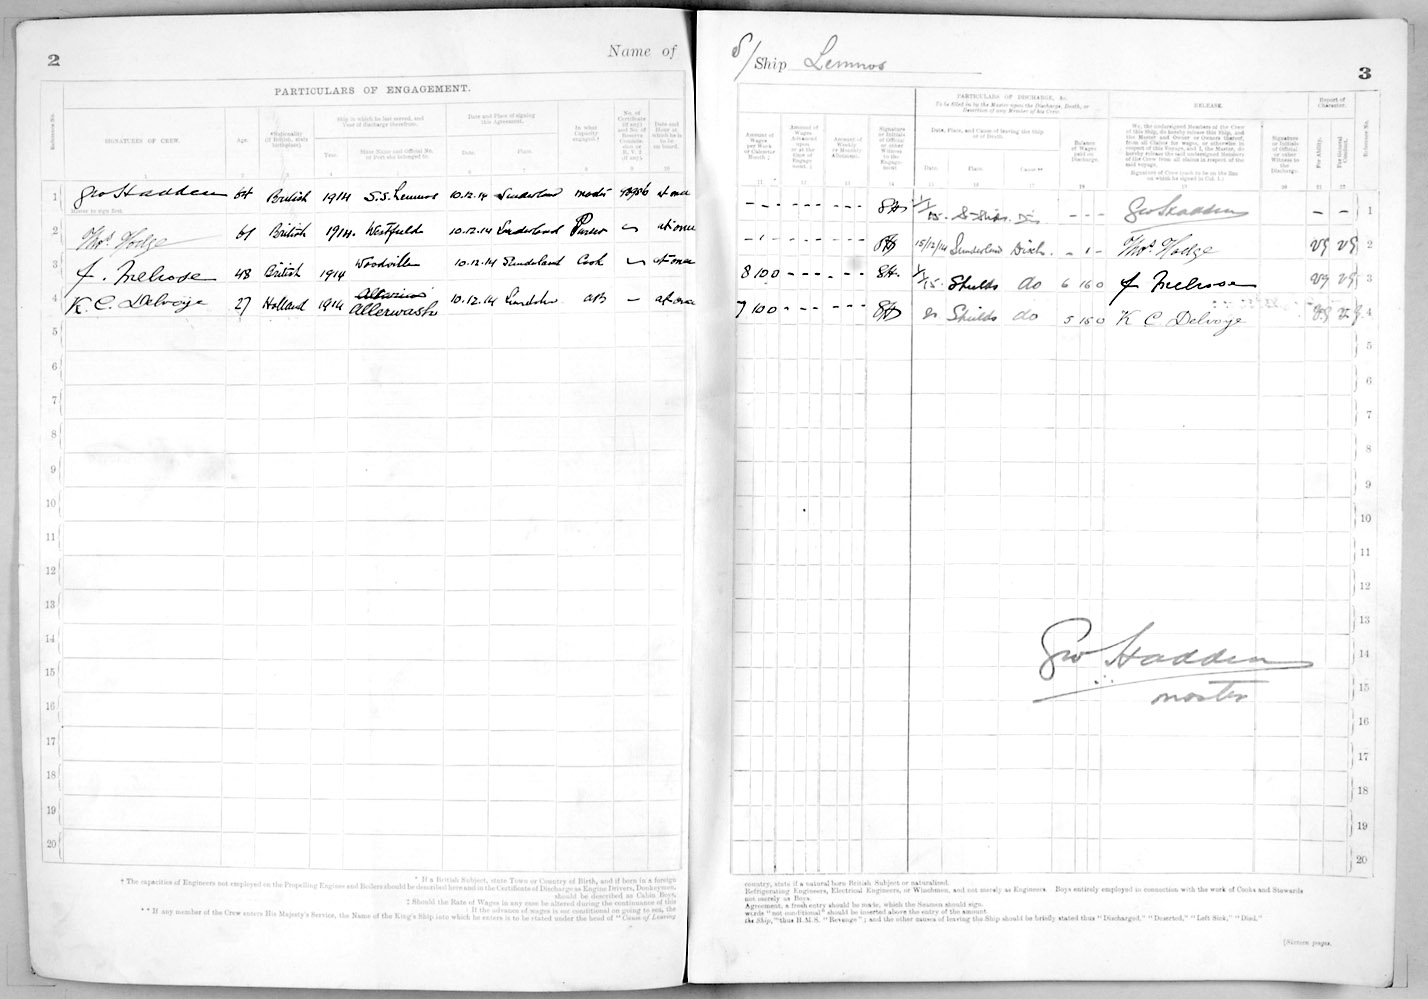 2
Name of
PARTICULARS OF ENGAGEMENT.
Reference No.
SIGNATURES OF CREW.
Age.
*Nationality (If British, state birthplace).
Ship in which he last served, and Year of discharge therefrom.
Year.
State Name and Official No. or Port she belonged to.
Date and Place of signing this Agreement.
Date.
Place.
In what Capacity engaged.†
No. of Certificate (if any) and No. of Reserve Commission or R.V. 2 (if any).
Date and Hour at which he is to be on board.
1 Geo Hadden 64 British 1914 S.S. Lemnos 10.12.14 Sunderland master at once
Master to sign first.
2 Thos Hodge 61 British 1914 Westfield 10.12.14 Sunderland Purser at once
3 J. Melrose 48 British 1914 Woodville 10.12.14 Sunderland Cook at once
4 K. C. Delvoije 27 Holland 1914 Allerwash 10.12.14 AB at once
5
6
7
8
9
10
11
12
13
14
15
16
17
18
19
20
* If a British Subject, state Town or Country of Birth, and if born in a foreign
† The capacities of Engineers not employed on the Propelling Engines and Boilers should be described here and in the Certificate of Discharge as Engine Drivers, Donkeymen,
should be described as Cabin Boys,
‡ Should the Rate of Wages in any case be altered during the continuance of this
‡ If the advance of wages is not conditional on going to sea, the
** If any member of the Crew enters His Majesty's Service, the Name of the King's Ship into which he enters is to be stated under the head of "Cause of Leaving
S/Ship Lemnos
3
PARTICULARS OF DISCHARGE, &c.
To be filled in by the Master upon the Discharge, Death, or Desertion of any Member of his Crew
RELEASE.
Report of Character.
Amount of Wages per Week or Calendar Month ‡
Amount of Wages Advanced upon or at the time of Engagement. ‡
Amount of Weekly or Monthly Allotment.
Signature or Initials of Official or other Witness to the Engagement
Date, Place, and Cause of leaving this Ship or of Death.
Date.
Place.
Cause**
Balance of Wages paid on Discharge.
We, the undersigned Members of the Crew of this Ship, do hereby release this Ship, and the Master and Owner or Owners thereof, from all Claims for wages, or otherwise in respect of this Voyage, and I, the Master, do hereby release the said undersigned Members of the Crew from all claims in respect of the said voyage.
Signature of Crew (each to be on the line on which he signed in Col. 1.)
Signature or Initials of Official or other Witness to the Discharge.
For Ability.
For General Conduct.
Reference No.
- - - - - - - - 1/1/15 S. Shields - - - Geo Hadden - - 1
15/12/14 Sunderland Disch. Thos Hodge VG VG 2
8 10 0 - - - - - - 1/1/15 Shields do 6 16 0 J Melrose VG VG 3
7 10 0 - - - - - - Shields do 5 15 0 K C Delvoije VG VG 4
5
6
7
8
9
10
11
12
13
Geo Hadden 14
master 15
16
17
18
19
20
country, state if a natural born British Subject or naturalized.
Refrigerating Engineers, Electrical Engineers, or Winchmen, and not merely as Engineers. Boys entirely employed in connection with the work of Cooks and Stewards
not merely as Boys.
Agreement, a fresh entry should be made, which the Seaman should sign.
words "not conditional" should be inserted above the entry of the amount.
the Ship," thus H.M.S. "Revenge"; and the other causes of leaving the Ship should be briefly stated thus "Discharged," "Deserted," "Left Sick," "Died."
[Sixteen pages.